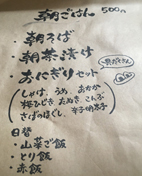 朝ごはん 500円
・朝そば
・朝茶漬け
・おにぎりセット
(しゃけ、うめ、おかか
糀ひしき たぬき、こんぶ
さばのほぐし、辛子明太子)
日替
・山菜ご飯
・とり飯
・赤飯